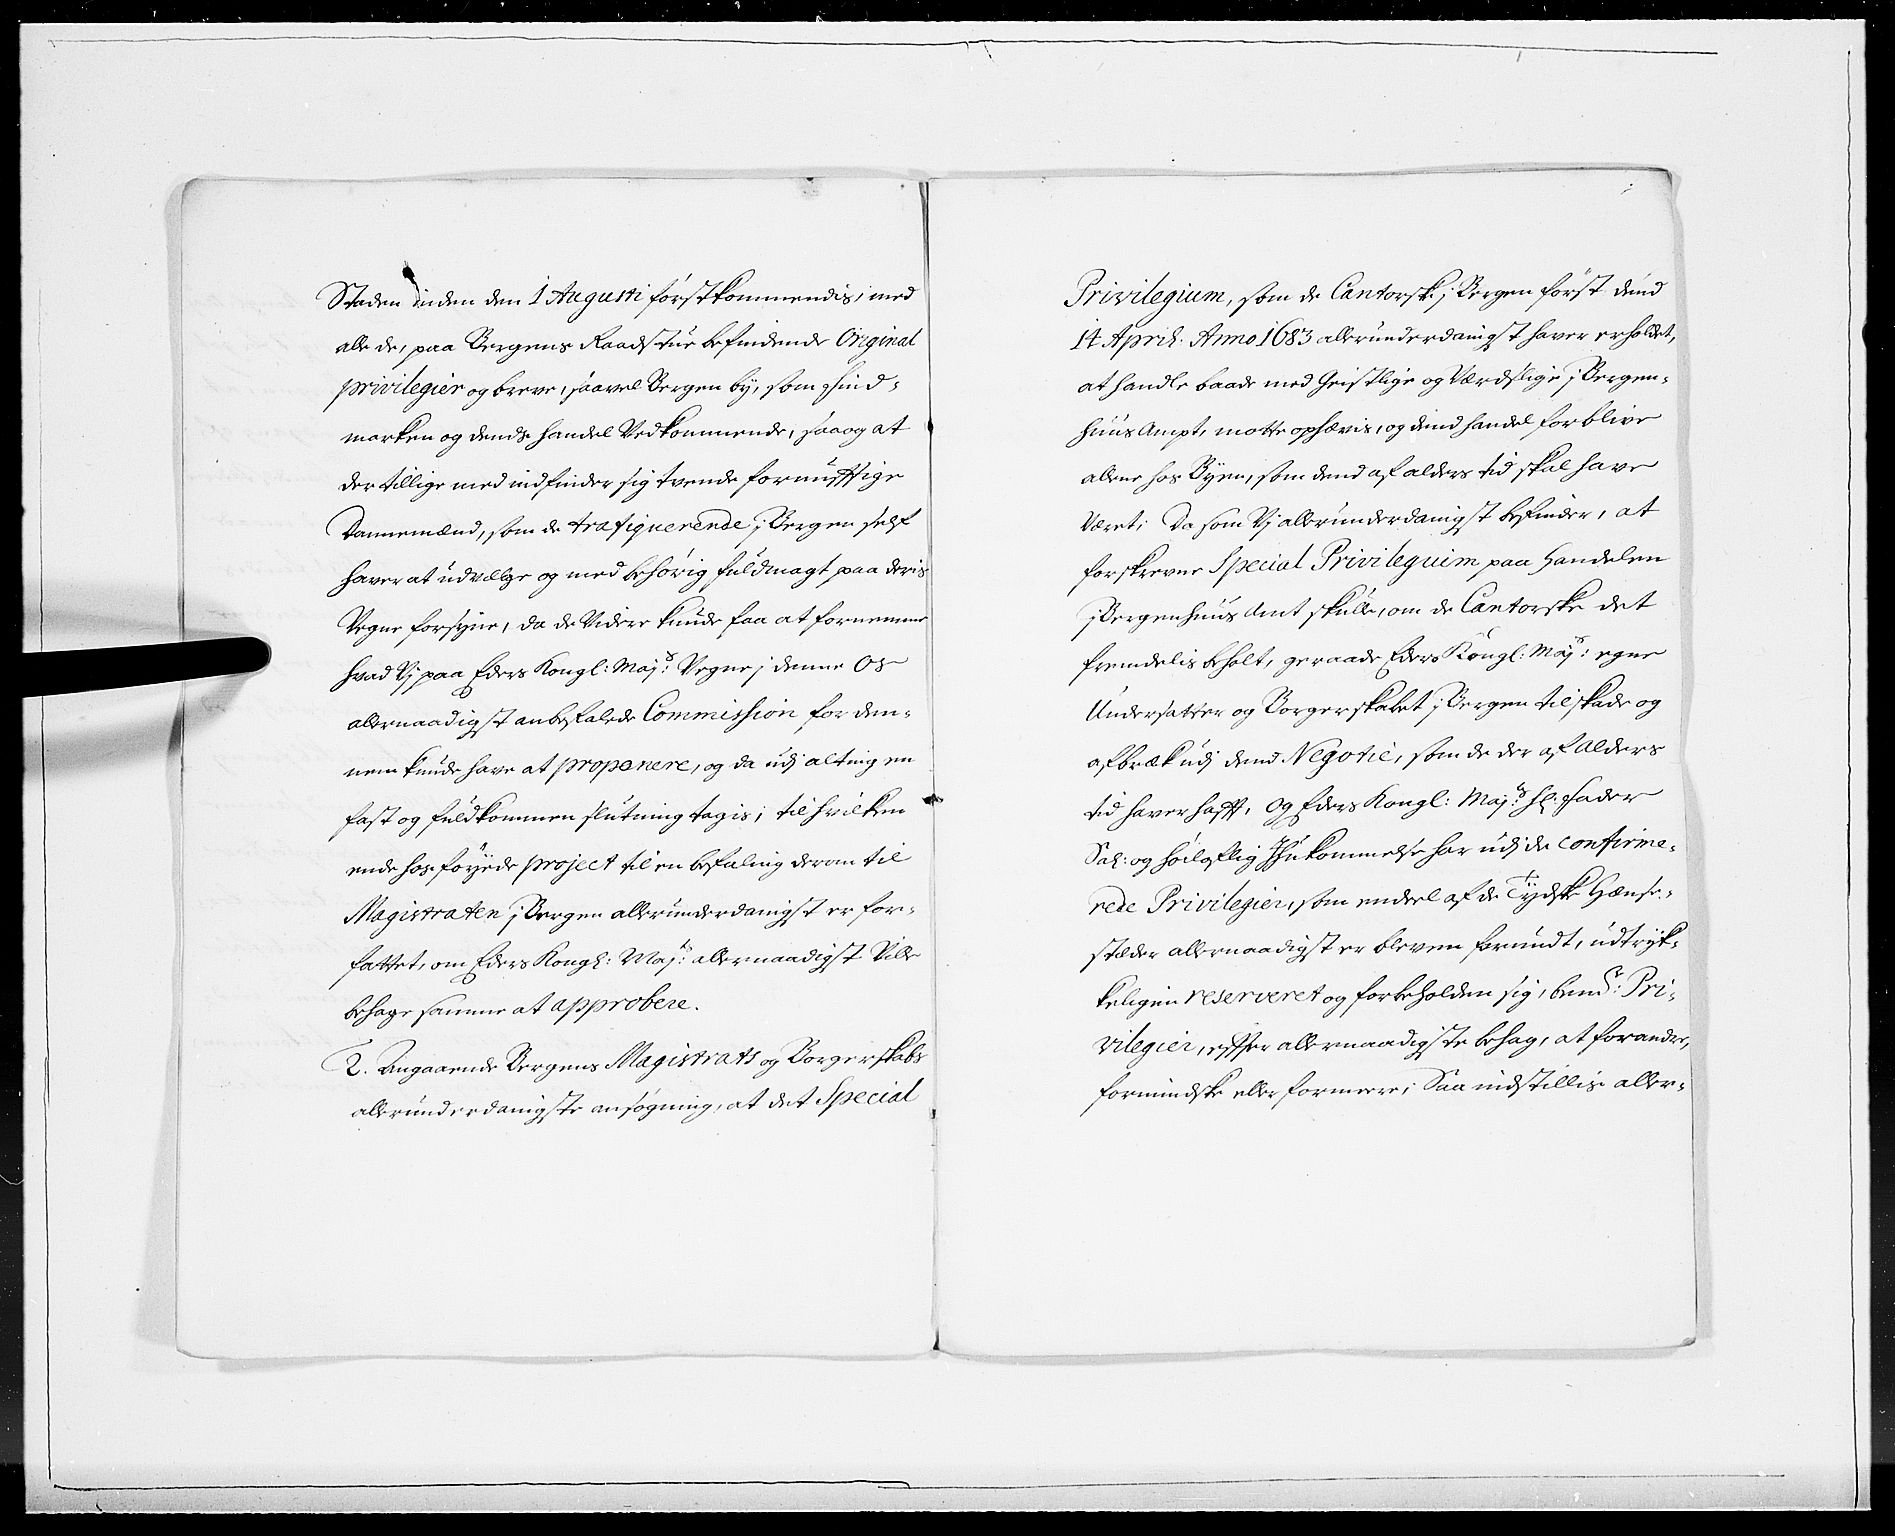 Staden inden den 1 Augusti först kommendis, med
alle de, paa Bergens Raadstue befindende Original
privilegier og breve, saavel Bergen by, som Find-
marken og dends handel Vedkommende, saa og at
der tillige med indfinder sig tvende fornufftige
Dannemænd, som de trafiquerende j Bergen self
haver at udvælge og med behörig fuldmagt paa deris
Vegne forsyne, da de Videre kunde faa at fornemme
hvad Vj paa Eders Kongl: Maj:s Vegne j denne Os
allernaadigst anbefalede Commission for den-
nem kunde have at proponere, og da udj alting en
fast og fuldkommen slutning tagis; til hvilken
ende hosföyede project til en befaling derom til
Magistraten j Bergen allerunderdanigst er for-
fattet, om Eders Kongl: Maj:s allernaadigst Ville
behage samme at approbere.
2. Angaaende Bergens Magistrats og Borgerskabs
allerunderdanigste ansögning, at det Special
Privilegium, som de Cantorske j Bergen först dend
14 April. Anno 1683 allerunderdanigst haver erholdet,
at handle baade med Geistlige og Værdslige j Bergen-
huus Ampt, motte ophævis, og dend handel forblive
allene hos Byen, som dend af alders tid skal have
Været; Da som Vj allerunderdanigst befinder, at
forskrevne Special Privilegium paa Handelen
j Bergenhuus Amt skulle, om de Cantorske det
fremdelis beholt, geraade Eders Kongl: Maj:s egne
Undersatter og Borgerskabet j Bergen til skade og
afbræk udj dend Negotie, som de der af Alders
tid haver hafft, Og Eders Kongl: Maj:s Hr. Fader
Sal: og höilofflig Ihukommelse har udj de confirme-
rede Privilegier, som endeel af de Tydske Hænse-
stæder allernaadigst er bleven forundt, udtryk-
keligen reserveret og forbeholden sig, bemte: Pri-
vilegier, effter allernaadigste behag, at forandre,
formindske eller formeere; Saa indstillis aller-